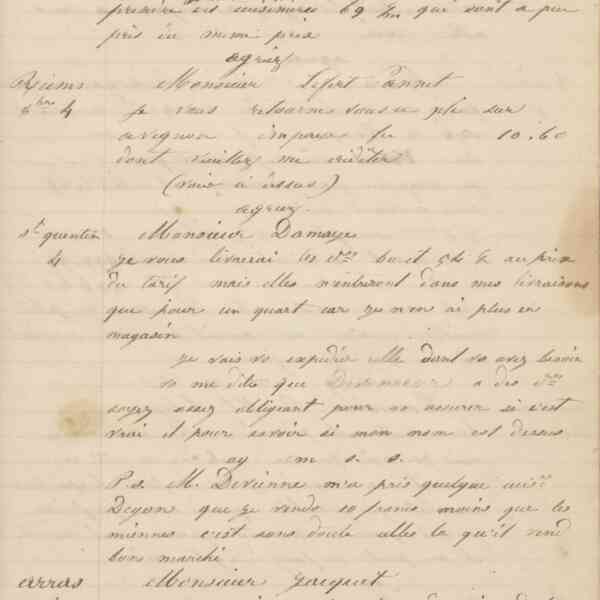 prendre des cuisinières 69 qui sont a peu
près du meme prix
agréez
Reims Monsieur Lefert Pannet
4 Je vous retourne sous ce pli sur
avignon impayée de 10.60
dont veuillez me créditer
(voir ci dessus)
agréez
St quentin Monsieur Damaye
4 Je vous livrerai les 60 et 54 au prix
du tarif mais elles n'entreront dans mes livraisons
que pour un quart car je n'en ai plus en
magasin
Je vais vs expédier celle dont vs avez besoin
vs me dites que a des
soyez assez obligeant pour vs assurer si c'est
vrai et pour savoir si mon nom est dessus
ag m s. s.
P.s. M. Devienne m'a pris quelque
que je vends 10 francs moins que les
miennes c'est sans doute celles la qu'il vend
bon marché
arras Monsieur Jacquet